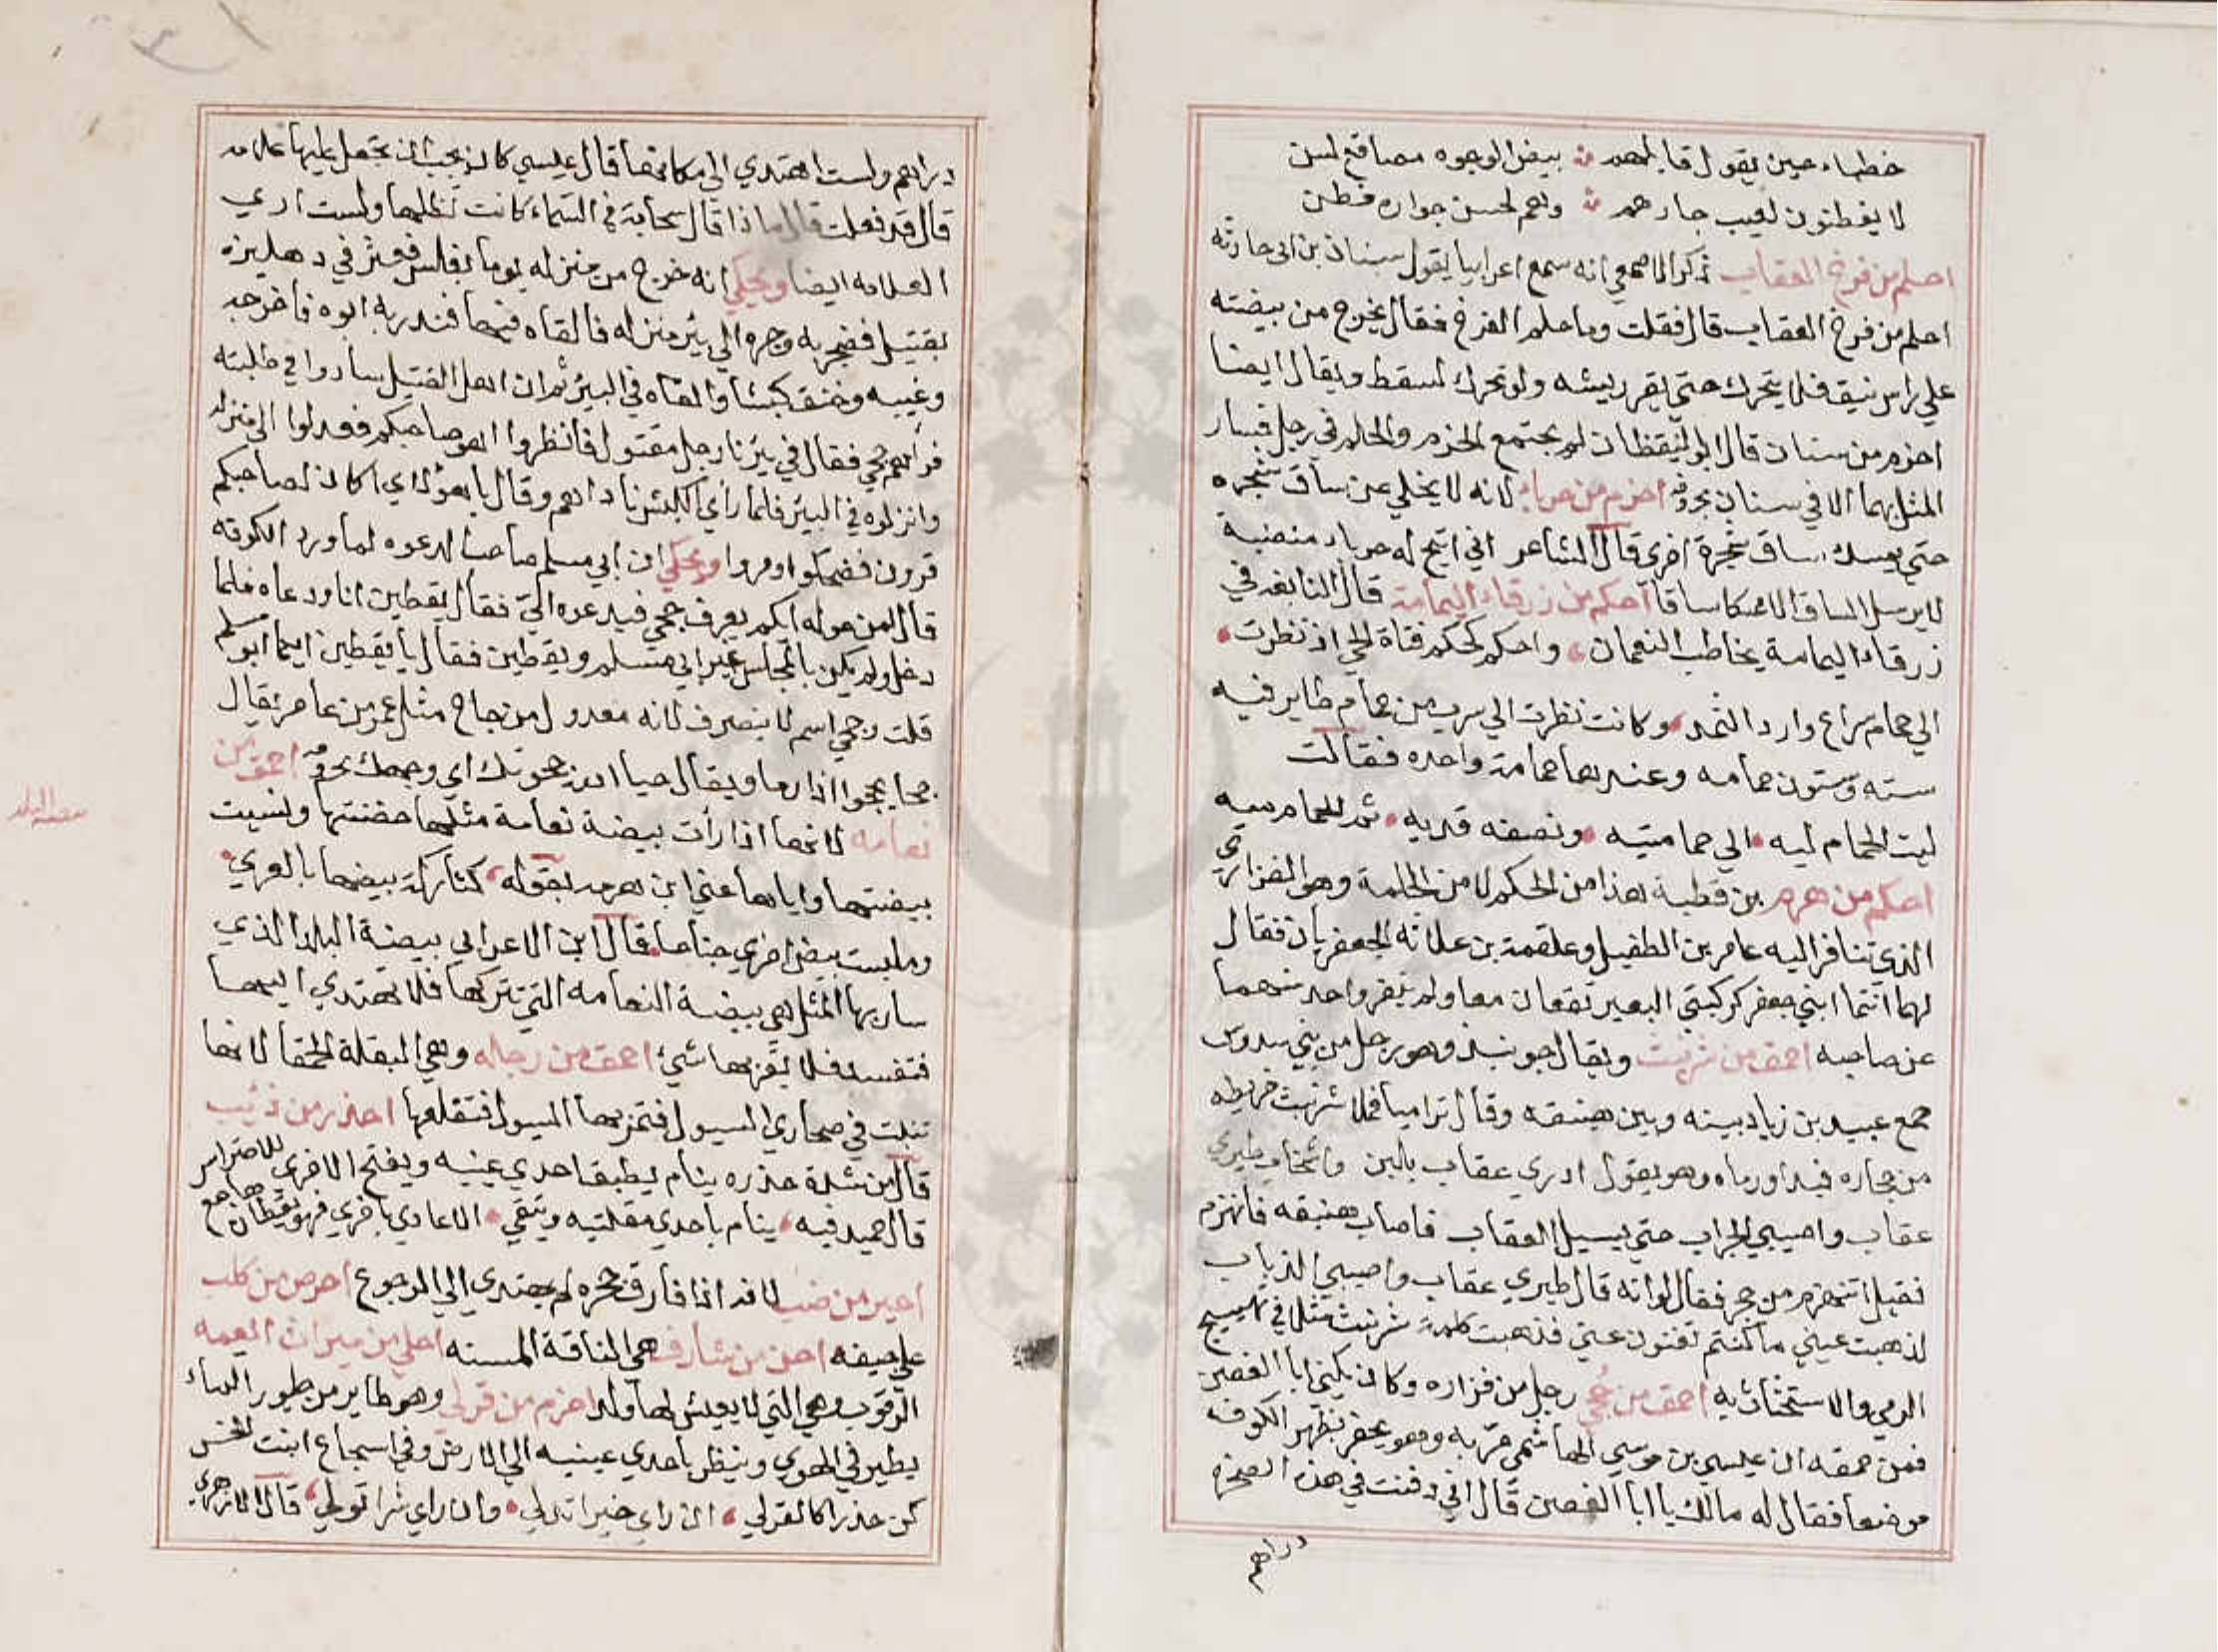 خطباء حين يقول قايلهم ؞ بيض الوجوه مصاقع لسن
لا يفطنون لعيب جارهم ؞ وهم لحسن جواره فطن
احلم من فرخ العقاب ذكر الاصمعي انه سمع اعرابيا يقول سنان بن ابي حارثه
احلم من فرخ العقاب قال فقلت وما حلم الفرخ فقال يخرج من بيضته
علي راس نيق فلا يتحرك حتي يقر ريشه ولو تحرك لسقط ويقال ايضا
احزم من سنان قال ابو اليقظان لم يجتمع الحزم والحلم في رجل فسار
المثل بهما الا في سنان احزم من حرباء لانه لا يخلي عن ساق شجره
حتي يمسك ساق شجرة اخري قال الشاعر اني اتيح له حرباء تنضبة
لا يرسل الساق الا ممسكا ساقا احكم من زرقاء اليمامة قال النابغه في
زرقاء اليمامة يخاطب النعمان، واحكم كحكم فتاة الحي اذ نظرت
الي حمام سراع وارد الثمد وكانت نظرت الي سرب من حمام طاير فيه
سته وستون حمامه وعندها حمامة واحده فقالت
ليت الحمام ليه الي حمامتيه ونصفه قديه تم الحمام ميه
احكم من هرم بن قطبة هذا من الحكم لا من الحلمة وهو الفزاري
الذي تنافر اليه عامر بن الطفيل وعلقمة بن علاثه الجعفريان فقال
لهما انتما ابني جعفر كركبتي البعير تقعان معا ولم ينفر واحد منهما
عن صاحبه احمق من شرنبث ويقال جرنبذ وهو رجل من بني سدوس
جمع عبيد بن زياد بينه وبين هبنقه وقال تراميا فملا شرنبث خريطه
من حجاره فبدا ورماه وهو يقول ادري عقاب بلبن واشخاب طيري
عقاب واصيبي الجراب حتي يسيل العقاب فاصاب هبنقه فانهزم
فقيل اتنهزم من حجر فقال لو انه قال طيري عقاب واصيبي الذباب
لذهبت عيني ما كنتم تغنون عني فذهبت كلمة شرنبث مثلا في تهييج
الرمي والاستحثاث به احمق من جُحي رجل من فزاره وكان يكني ابا الغصن
فمن حمقه ان عيسي بن موسي الهاشمي مرّ به وهو يحفر بظهر الكوفه
موضعا فقال له مالك يا ابا الغصن قال اني دفنت في هذه الصخره
دراهم
دراهم ولست اهتدي الي مكانها قال عيسي كان يجب ان تجعل عليها علامه
قال قد فعلت قال ماذا قال سحابة في السماء كانت تظلها ولست اري
العلامه ايضا ويحكي انه خرج من منزله يوما بغلس فعثر في دهليزه
بقتيل فضجر به وجره الي بئر منزله فالقاه فيها فندر به ابوه فاخرجه
وغيبه وخنق كبشا والقاه في البئر ثم ان اهل القتيل ساروا في طلبته
فراهم جحي فقال في بئرنا رجل مقتول فانظروا اهو صاحبكم فعدلوا الي منزله
وانزلوه في البئر فلما راي الكبش ناداهم وقال يا هؤلاي اكان لصاحبكم
قرون فضحكوا ومروا ويحكي ان ابي مسلم صاحب الدعوه لما ورد الكوفه
قال لمن حوله ايكم يعرف جحي فيدعوه اليّ فقال يقطين انا ودعاه فلما
دخل ولم يكن بالمجلس غير ابي مسلم ويقطين فقال يا يقطين ايما ابو مسلم
قلت وجحي اسم لا ينصرف لانه معدول من جاح مثل عمر من عامر يقال
جحا يجحوا اذا رما ويقال حيا الله جحوتك اي وجهك احمق من
نعامه لانها اذا رأت بيضة نعامة مثلها حضنتها ونسيت
بيضتها واياها عني ابن هرمه بقوله، كتاركة بيضها بالعري
وملبست بيض اخري جناحا قال ابن الاعرابي بيضة البلد الذي
سار بها المثل هي بيضة النعامه التي تتركها فلا تهتدي اليها
فتفسد فلا يقربها شيئ احمق من رجله وهي البقلة الحمقا لانها
تنبت في مجاري السيول فتمر بها السيول فتقلعها احذر من ذئب
قال من شدة حذره ينام يطبق احدي عينيه ويفتح الاخري للاحتراس
قال حميد فيه، ينام باحدي مقلتيه ويتقي الاعادي باخري فهو يقظان هاجع
احير من ضب لانه اذا فارق جحره لم يهتدي الي الرجوع احرص من كلب
علي جيفه احن من شارف هي الناقة المسنه احلي من ميراث العمه
الرقوب وهي التي لا يعيش لها ولد احزم من قرلي وهو طاير من طيور الماء
يطير في الهوي وينظر باحدي عينيه الي الارض وفي اسجاع ابنت الخس
كن حذرا كالقرلي، ان راي خيرا تدلي وان راي شرا تولي، قال الازهري
بيضة البلد